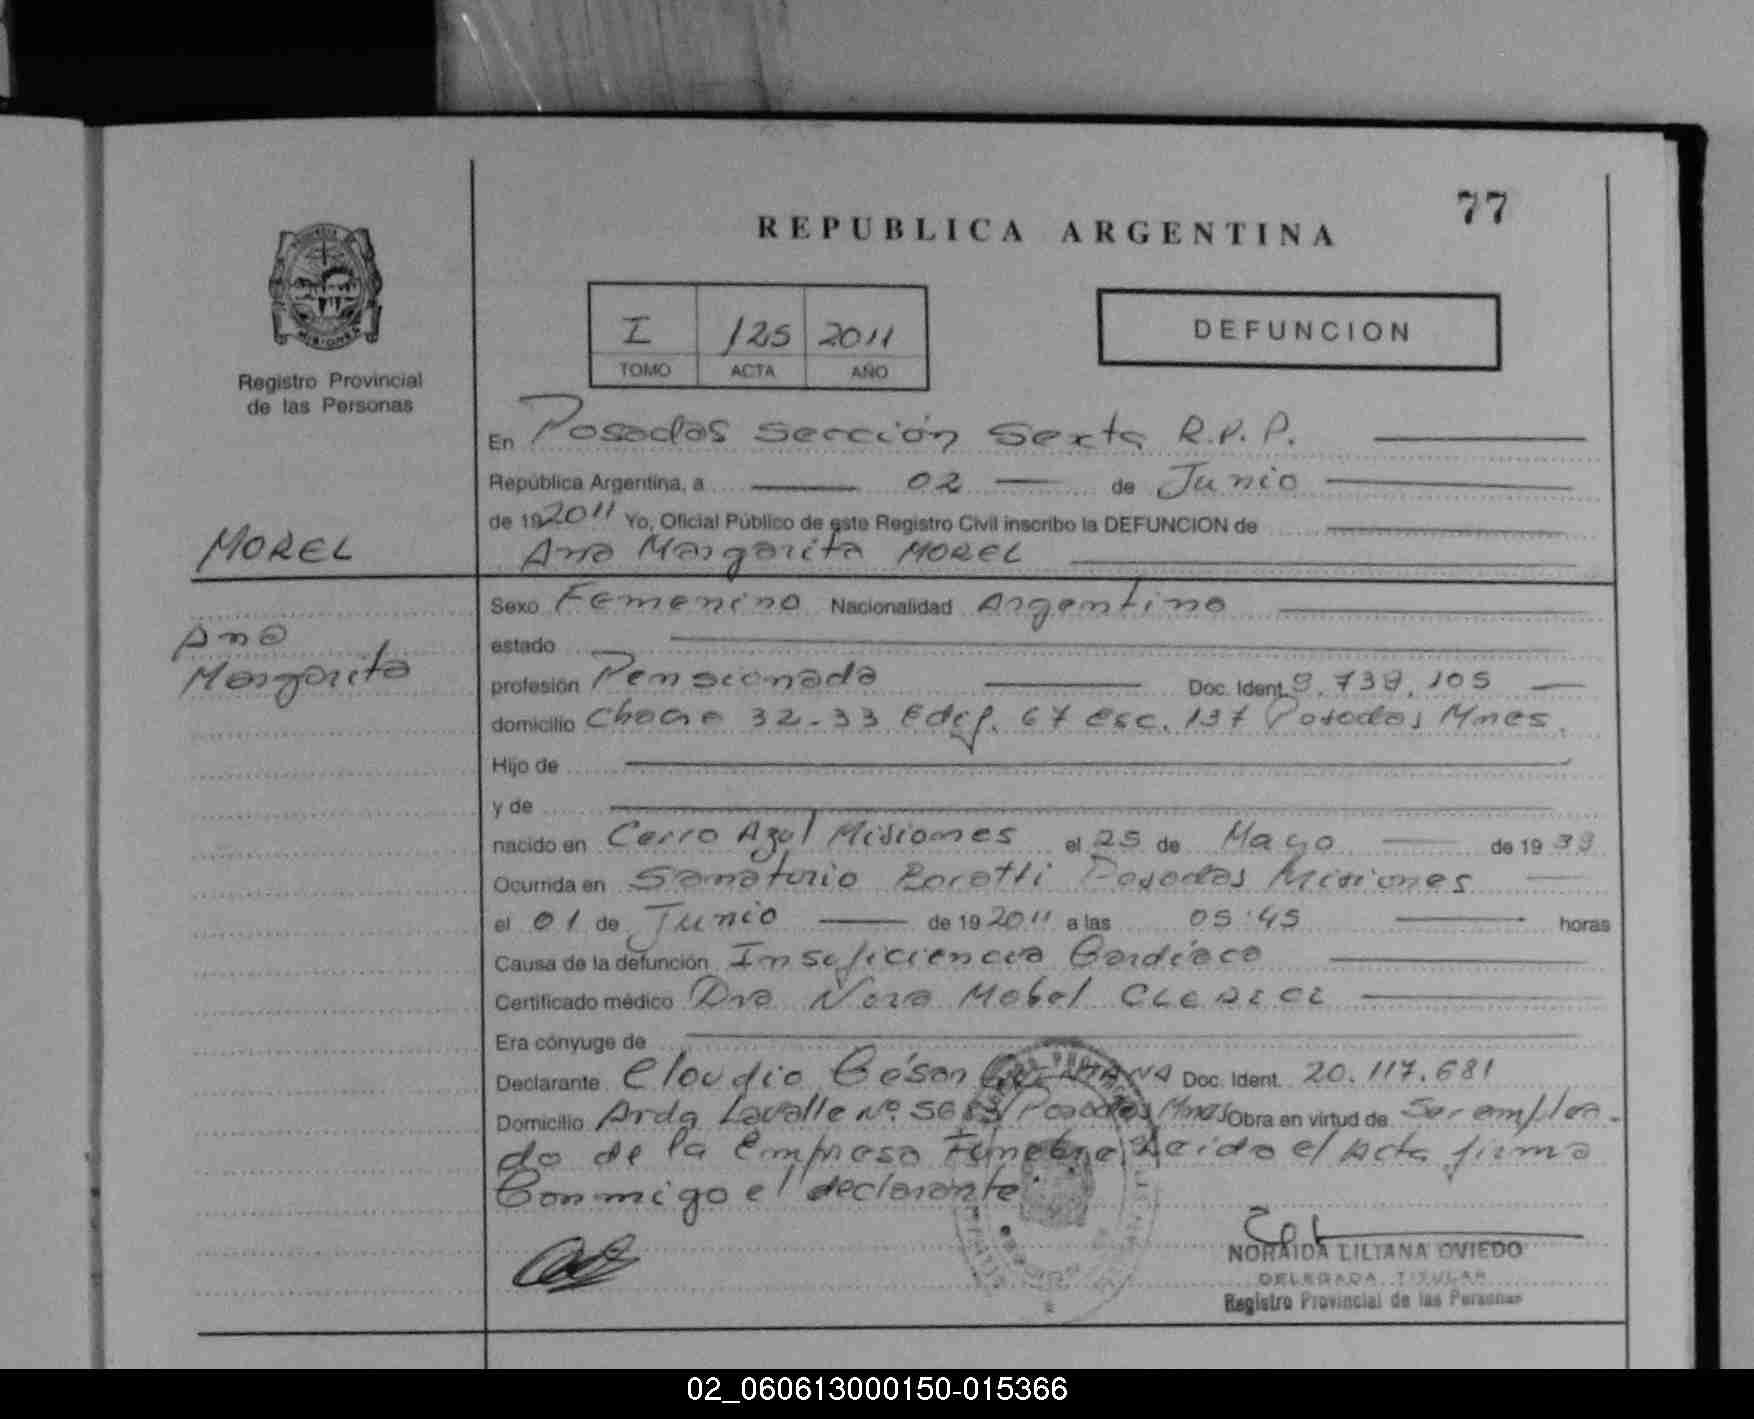 77
REPUBLICA ARGENTINA
I 125 2011
TOMO ACTA AÑO
DEFUNCION
Registro Provincial
de las Personas
MOREL
Ana
Margarita
En Posadas Sección Sexta R.P.P.
República Argentina, a 02 de Junio
de 192011 Yo, Oficial Público de este Registro Civil inscribo la DEFUNCION de
Ana Margarita MOREL
Sexo Femenino Nacionalidad Argentina
estado
profesión Pensionada Doc. Ident. 9.739.105
domicilio Chacra 32-33 Edif. 67 esc. 137 Posadas Mnes.
Hijo de
y de
nacido en Cerro Azul Misiones el 25 de Mayo de 1939
Ocurrida en Sanatorio Boratti Posadas Misiones
el 01 de Junio de 192011 a las 05:45 horas
Causa de la defunción Insuficiencia Cardíaca
Certificado médico Dra Nora Mabel CLERICI
Era cónyuge de
Declarante Claudio César Doc. Ident. 20.117.681
Domicilio Avda Lavalle Nº Posadas Mnes Obra en virtud de Ser emplea-
do de la Empresa Fúnebre, Leida el Acta firma
Conmigo el declarante
NORAIDA LILIANA OVIEDO
DELEGADA TITULAR
Registro Provincial de las Personas
02_060613000150-015366